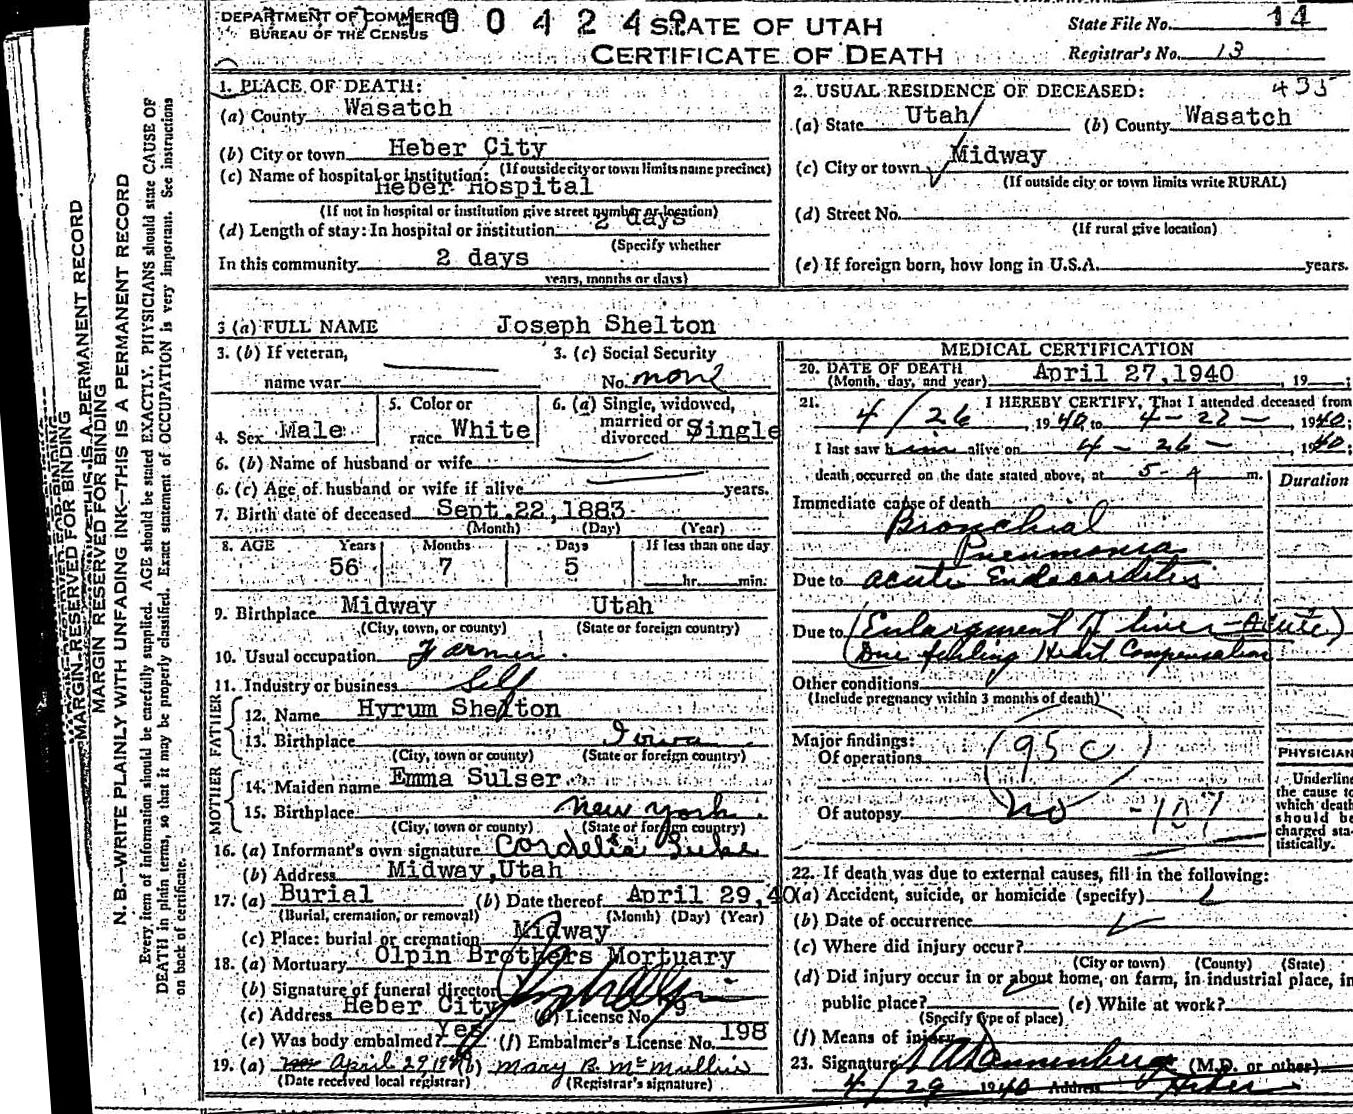 DEPARTMENT OF COMMERCE
BUREAU OF THE CENSUS
0 0 4 2 4
STATE OF UTAH
CERTIFICATE OF DEATH
State File No. 14
Registrar's No. 13
1. PLACE OF DEATH:
(a) County Wasatch
(b) City or town Heber City
(If outside city or town limits name precinct)
(c) Name of hospital or institution:
Heber Hospital
(If not in hospital or institution give street number or location)
(d) Length of stay: In hospital or institution 2 days
(Specify whether
In this community 2 days
years, months or days)
2. USUAL RESIDENCE OF DECEASED: 435
(a) State Utah (b) County Wasatch
(c) City or town Midway
(If outside city or town limits write RURAL)
(d) Street No.
(If rural give location)
(e) If foreign born, how long in U.S.A. years.
3 (a) FULL NAME Joseph Shelton
3. (b) If veteran, 3. (c) Social Security
name war No. none
4. Sex Male
5. Color or
race White
6. (a) Single, widowed,
married or
divorced Single
6. (b) Name of husband or wife
6. (c) Age of husband or wife if alive years.
7. Birth date of deceased Sept.22,1883
(Month) (Day) (Year)
8. AGE Years Months Days If less than one day
56 7 5 hr. min.
9. Birthplace Midway Utah
(City, town, or county) (State or foreign country)
10. Usual occupation Farmer.
11. Industry or business Self
FATHER
12. Name Hyrum Shelton
13. Birthplace Iowa
(City, town or county) (State or foreign country)
MOTHER
14. Maiden name Emma Sulser
15. Birthplace New York.
(City, town or county) (State or foreign country)
16. (a) Informant's own signature Cordelia
(b) Address Midway,Utah
17. (a) Burial (b) Date thereof April 29,40
(Burial, cremation, or removal) (Month) (Day) (Year)
(c) Place: burial or cremation Midway
18. (a) Mortuary Olpin Brothers Mortuary
(b) Signature of funeral director
(c) Address Heber City (d) License No. 9
(e) Was body embalmed? Yes (f) Embalmer's License No. 198
19. (a) April 29 1940 (b) Mary B. McMullin
(Date received local registrar) (Registrar's signature)
MEDICAL CERTIFICATION
20. DATE OF DEATH
(Month, day, and year) April 27,1940, 19 ;
21. I HEREBY CERTIFY, That I attended deceased from
4/26, 1940, to 4-22-, 1940;
I last saw him alive on 4-26-, 1940;
death occurred on the date stated above, at 5- m.
Duration
Immediate cause of death
Bronchial
Pneumonia
Due to acute Endocarditis
Due to (Enlargment of liver-Acute)
(Due failing Heart Compensation
Other conditions
(Include pregnancy within 3 months of death)
Major findings:
Of operations
95 c
Of autopsy no -107
PHYSICIAN
Underline
the cause to
which death
should be
charged sta-
tistically.
22. If death was due to external causes, fill in the following:
(a) Accident, suicide, or homicide (specify)
(b) Date of occurrence
(c) Where did injury occur?
(City or town) (County) (State)
(d) Did injury occur in or about home, on farm, in industrial place, in
public place? (e) While at work?
(Specify type of place)
(f) Means of injury
23. Signature (M.D. or other)
4/29 1940 Address Heber
MARGIN RESERVED FOR BINDING
N. B.—WRITE PLAINLY WITH UNFADING INK—THIS IS A PERMANENT RECORD
Every item of information should be carefully supplied. AGE should be stated EXACTLY. PHYSICIANS should state CAUSE OF
DEATH in plain terms, so that it may be properly classified. Exact statement of OCCUPATION is very important. See instructions
on back of certificate.